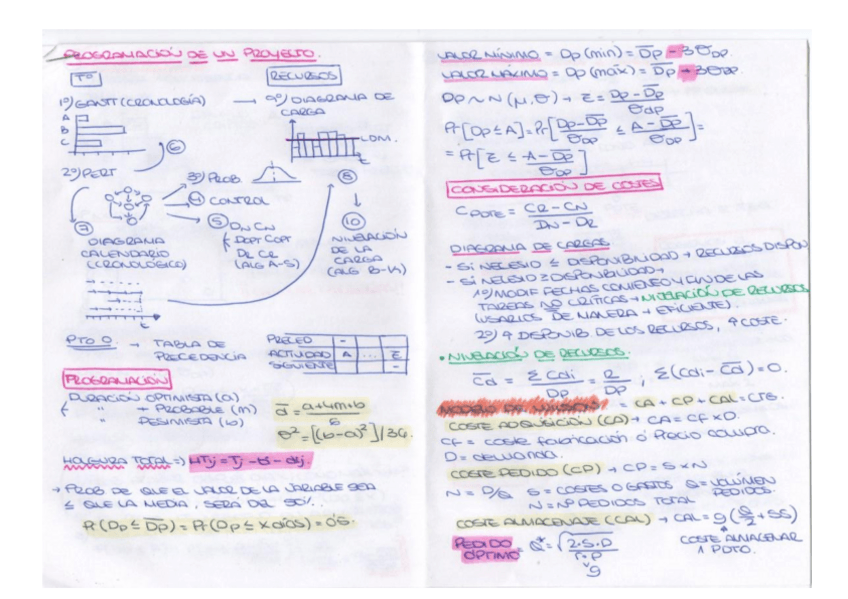 PROGRAMACIÓN DE UN PROYECTO.
Tº
RECURSOS
1º) GANTT (CRONOLOGÍA) → 9º) DIAGRAMA DE CARGA
A
B
C
⑥
LIM.
t
2º) PERT
3º) PROB.
④ CONTROL
⑤ DN CN
DOPT COPT
DR CR
(ALG A-S)
⑦
DIAGRAMA
CALENDARIO
(CRONOLÓGICO)
t
⑧
⑩
NIVELACIÓN
DE LA
CARGA
(ALG B-K)
PTO 0. → TABLA DE PRECEDENCIA
PRECED -
ACTIVIDAD A ... Z
SIGUIENTE -
PROGRAMACIÓN
DURACIÓN OPTIMISTA (a)
" + PROBABLE (m)
" PESIMISTA (b)
d̅ = a+4m+b / 6
σ² = [(b-a)²]/36.
HOLGURA TOTAL => HTij = Tj - ti - dij.
→ PROB DE QUE EL VALOR DE LA VARIABLE SEA
≤ QUE LA MEDIA, SERÁ DEL 50%.
Pr(Dp ≤ D̅p) = Pr(Dp ≤ x días) = 0'5.
VALOR MÍNIMO = Dp (min) = D̅p - 3σDp.
VALOR MÁXIMO = Dp (máx) = D̅p + 3σDp.
Dp ~ N (μ, σ) → z = Dp - D̅p / σdp
Pr[Dp ≤ A] = Pr[Dp - D̅p / σDp ≤ A - D̅p / σDp] =
= Pr[z ≤ A - D̅p / σDp]
CONSIDERACIÓN DE COSTES
C = CR - CN / DN - DR
DIAGRAMA DE CARGAS
- SI NECESIO ≤ DISPONIBILIDAD → RECURSOS DISPON
- SI NECESIO ≥ DISPONIBILIDAD →
1º) MODIF FECHAS COMIENZO Y FIN DE LAS
TAREAS NO CRÍTICAS → NIVELACIÓN DE RECURSOS
(USARLOS DE MANERA + EFICIENTE).
2º) ↑ DISPONIB DE LOS RECURSOS, ↑ COSTE.
• NIVELACIÓN DE RECURSOS.
C̅d = Σ Cdi / Dp = R / Dp ; Σ(Cdi - C̅d) = 0.
= CA + CP + CAL = CTE.
COSTE ADQUISICIÓN (CA) → CA = CF × D.
CF = coste fabricación ó Precio compra.
D = demanda.
COSTE PEDIDO (CP) → CP = S × N
N = D/Q S = COSTES O GASTOS Q = VOLÚMEN PEDIDOS.
N = Nº PEDIDOS TOTAL
COSTE ALMACENAJE (CAL) → CAL = g (Q/2 + SS)
COSTE ALMACENAR
1 PDTO.
PEDIDO ÓPTIMO = Q* = √(2·S·D / r·P)
g